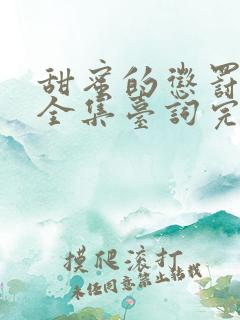 甜蜜的懲罰
全集臺詞完
摸爬滚打
未经同意禁止转载